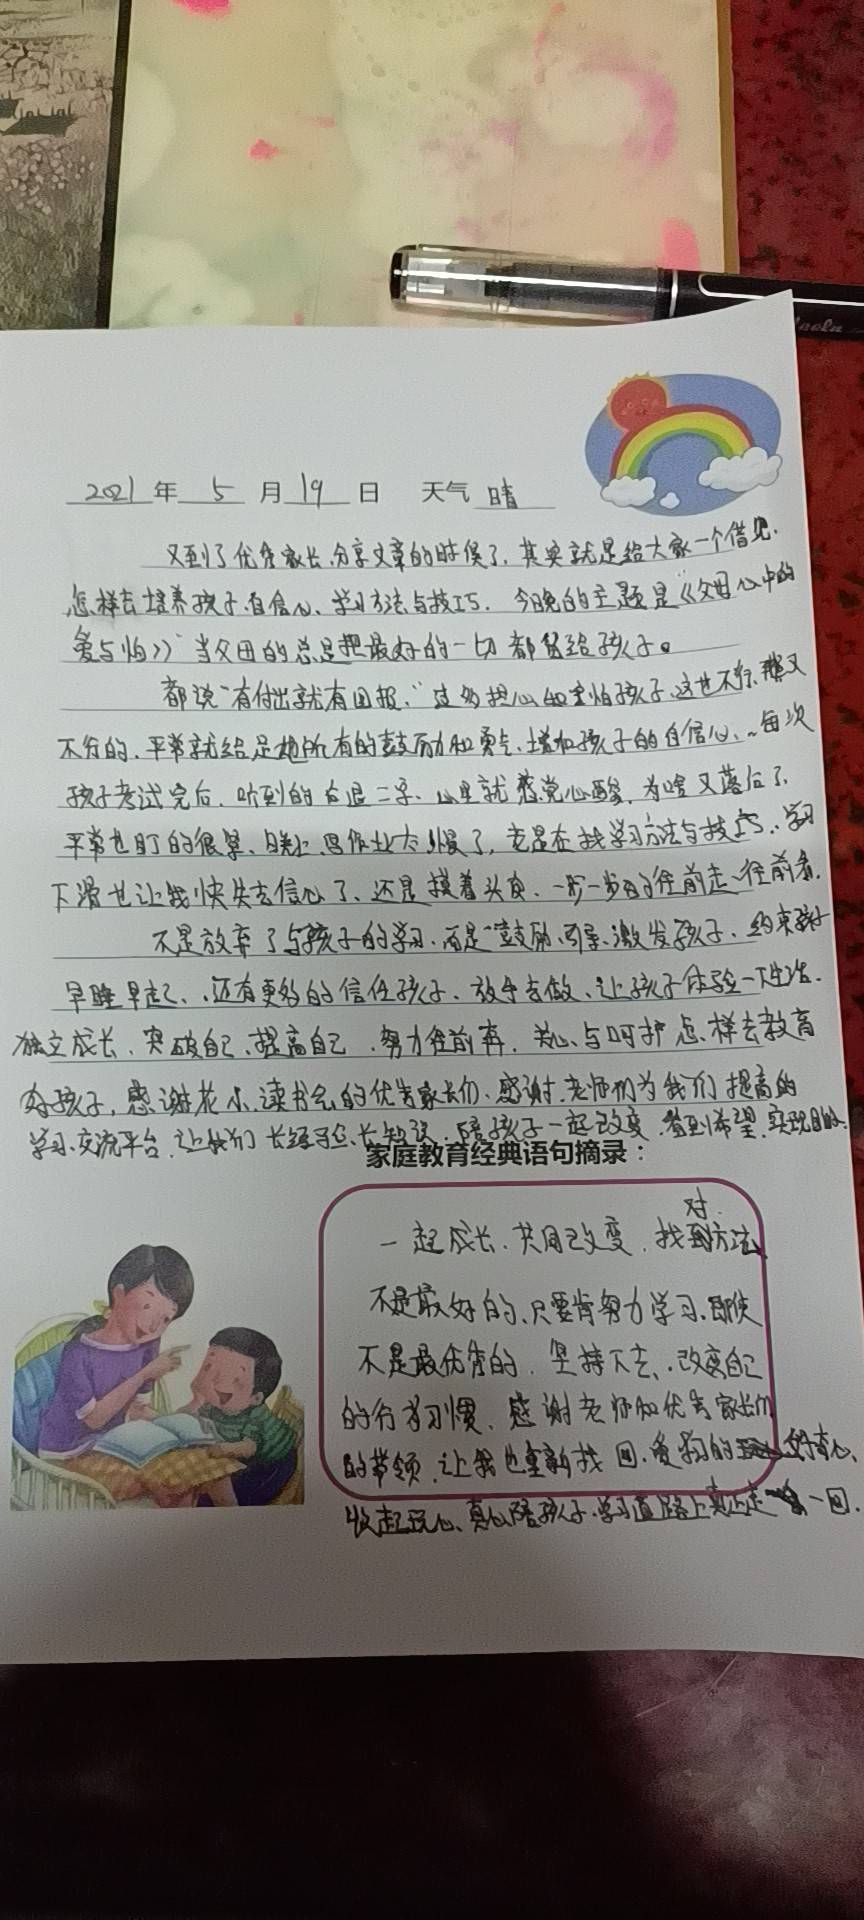 2021年 5 月 19 日 天气 晴
又到了优秀家长分享文章的时候了,其实就是给大家一个借见,
怎样去培养孩子自信心、学习方法与技巧. 今晚的主题是《父母心中的
爱与怕》》当父母的总是把最好的一切都留给孩子。
都说"有付出就有回报,"过多担心和害怕孩子,这也不行,那又
不行的,平常就给足他所有的鼓励和勇气,增加孩子的自信心,每次
孩子考试完后,听到的后退二字,心里就感觉心酸,为啥又落后了
平常也盯的很紧,晚上写作业太慢了,老是在找学习方法与技巧,学习
下滑也让我快失去信心了,还是摸着头皮,一步一步的往前走,往前看.
不是放弃了与孩子的学习,而是"鼓励、引导、激发孩子,约束孩子
早睡早起,还有更多的信任孩子,放手去做,让孩子体验一下生活.
独立成长、突破自己、提高自己,努力往前奔,关心与呵护怎样去教育
好孩子,感谢花小读书会的优秀家长们,感谢老师们为我们提高的
学习交流平台,让我们长经验、长知识,陪孩子一起改变,看到希望,实现目标.
家庭教育经典语句摘录:
一起成长、共同改变,找对方法
不是最好的、只要肯努力学习,即使
不是最优秀的,坚持下去,改变自己
的行为习惯,感谢老师和优秀家长们
的带领,让我也重新找回,爱狗的好奇心,
收起玩心、真心陪孩子学习道路上真正走一回.